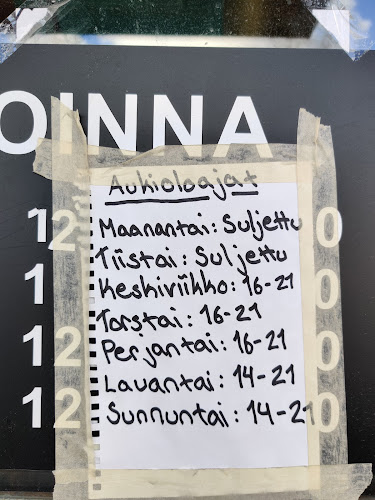 OINNA
Aukioloajat
Maanantai: Suljettu
Tiistai: Suljettu
Keskiviikko: 16-21
Torstai: 16-21
Perjantai: 16-21
Lauantai: 14-21
Sunnuntai: 14-21
12 0
1 0
12 0
12 0